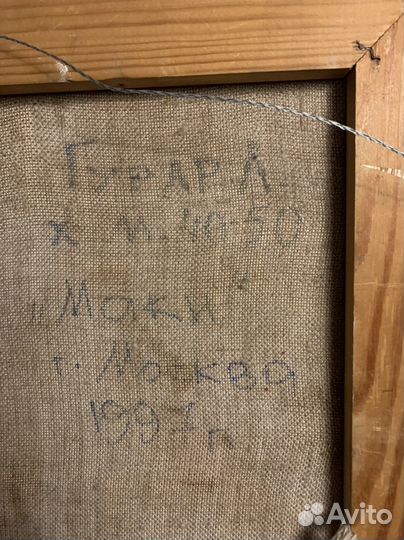 х м. 40-50
"Маки"
г. Москва
1997 г
Avito